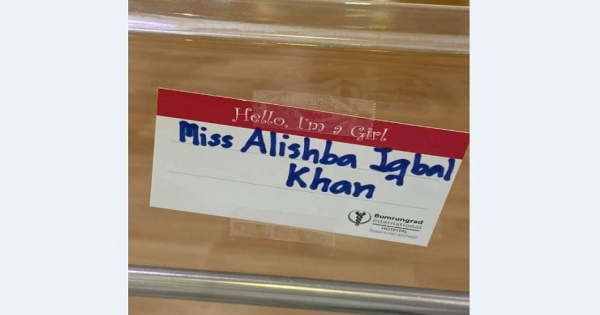 Hello, I'm a Girl
Miss Alishba Iqbal
Khan
Bumrungrad
International
HOSPITAL